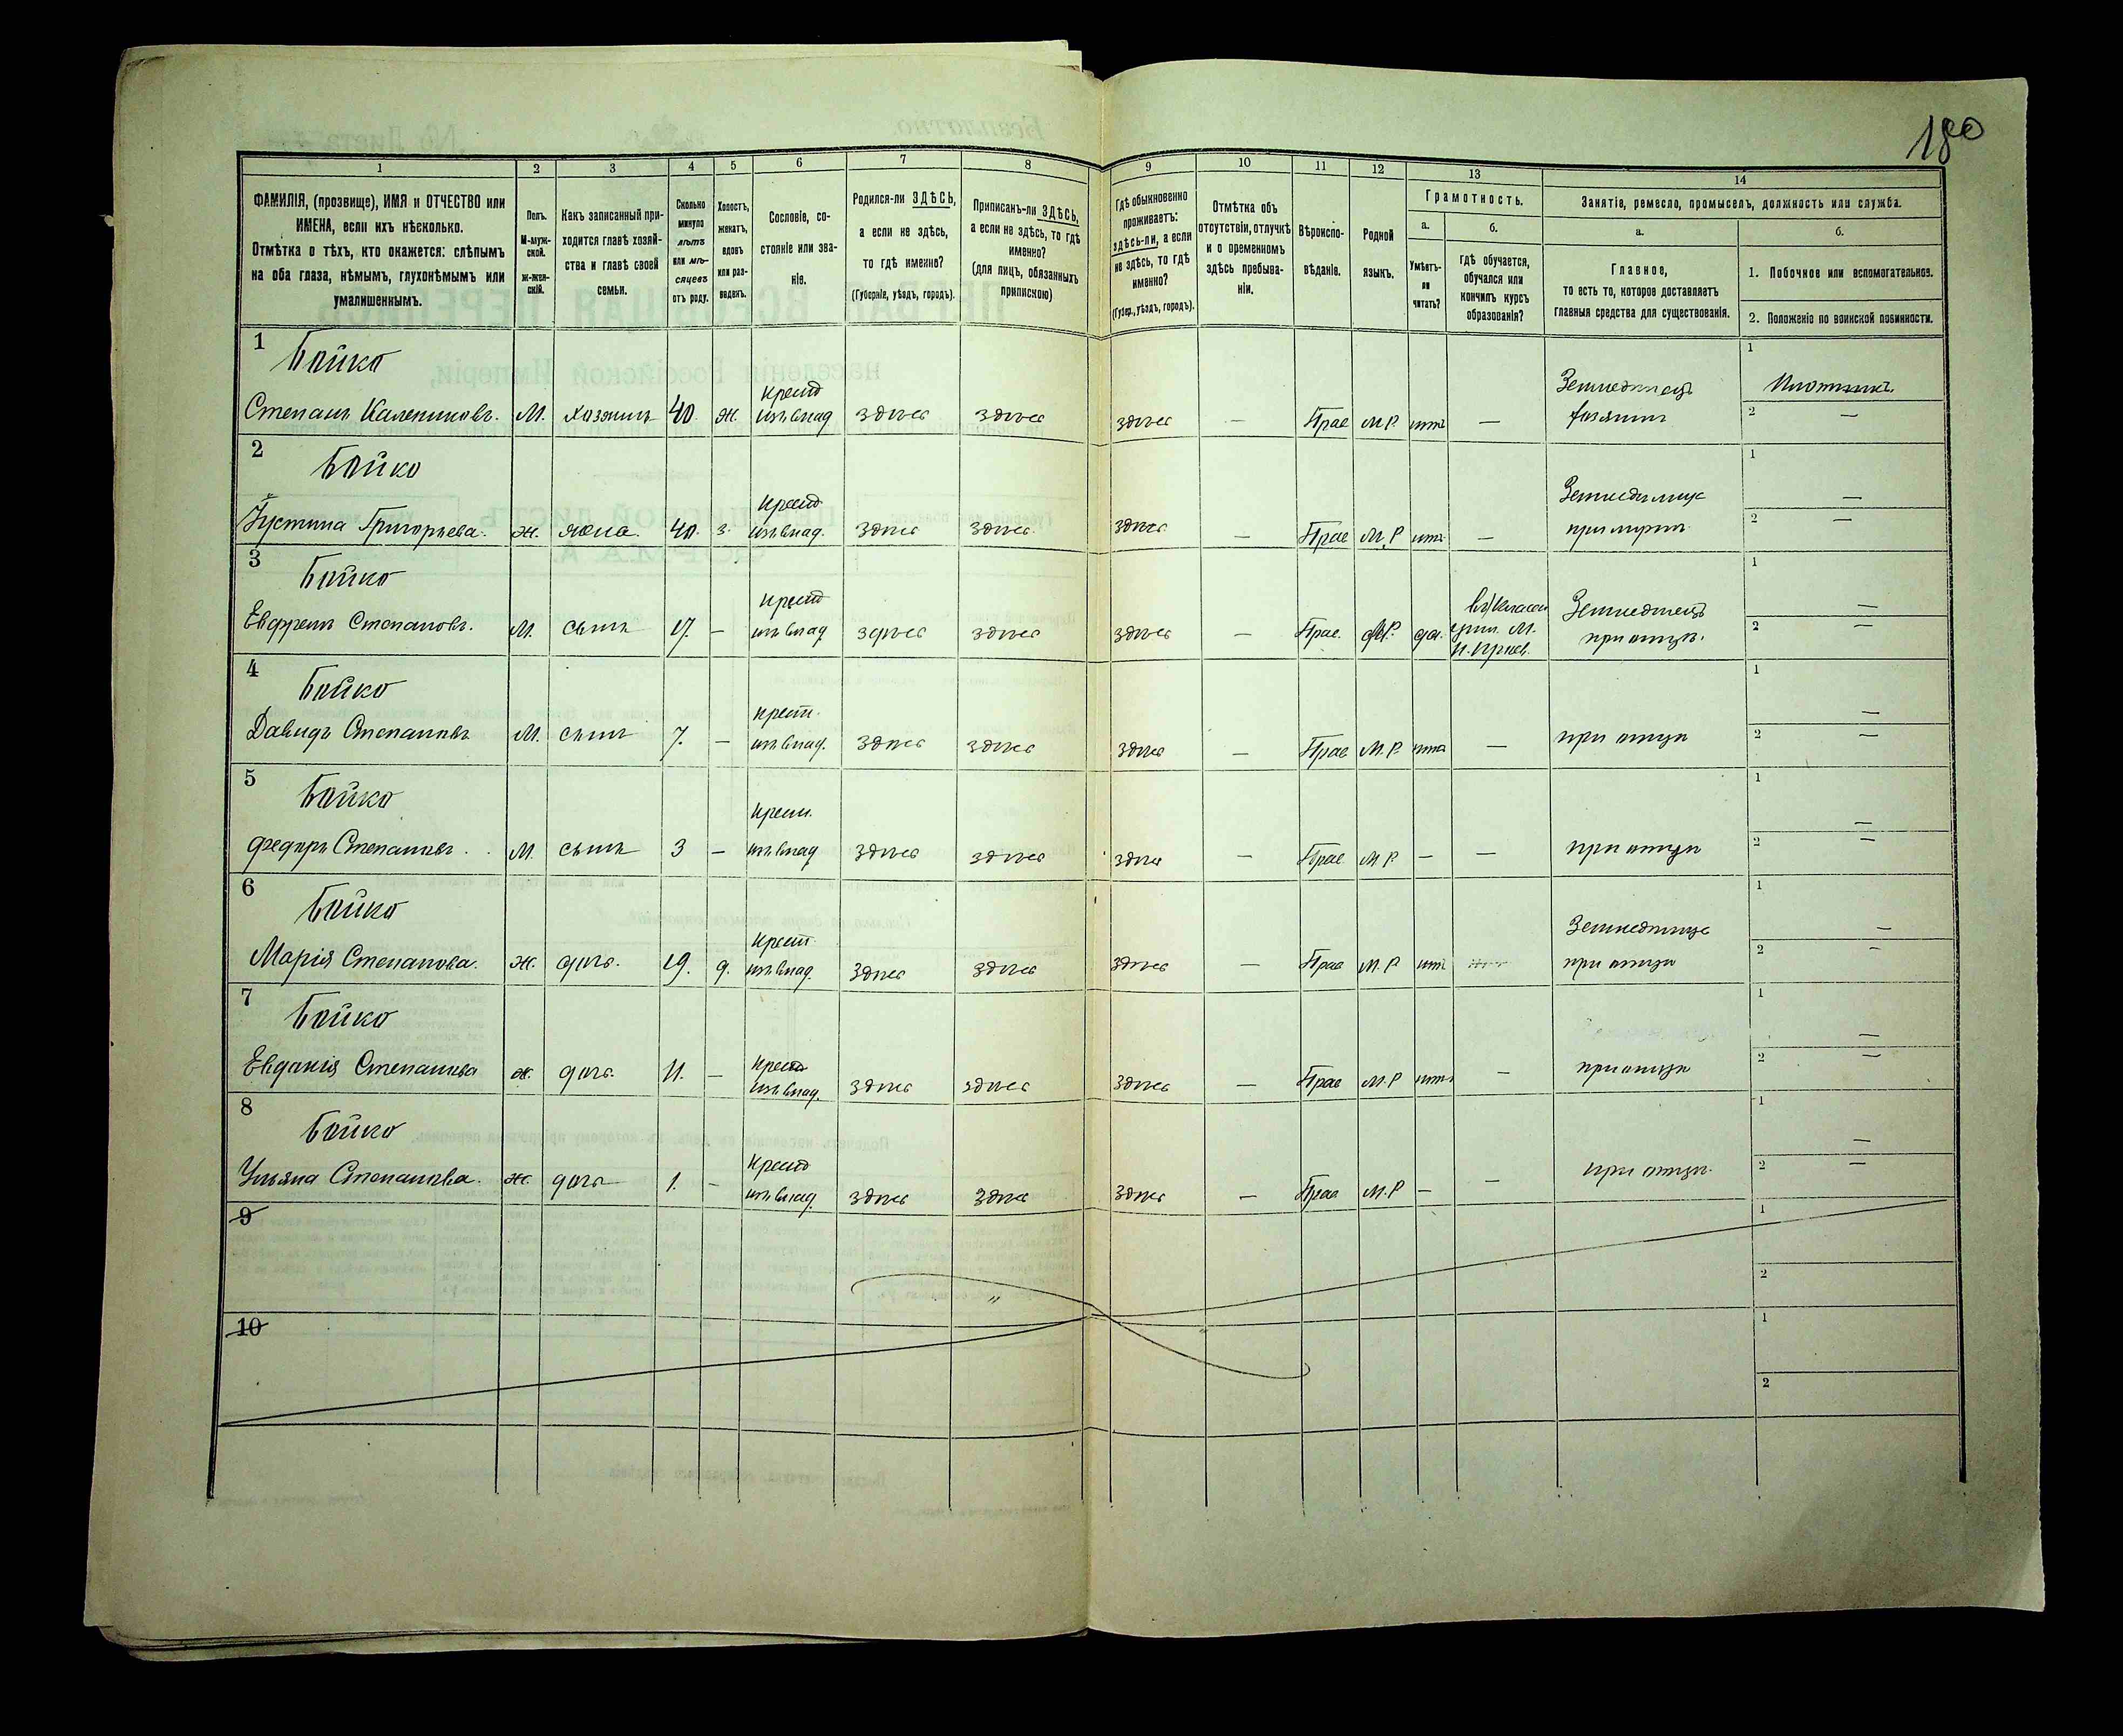 180
1 2 3 4 5 6 7 8 9 10 11 12 13 14
ФАМИЛІЯ, (прозвище), ИМЯ и ОТЧЕСТВО или
ИМЕНА, если ихъ нѣсколько.
Отмѣтка о тѣхъ, кто окажется: слѣпымъ
на оба глаза, нѣмымъ, глухонѣмымъ или
умалишеннымъ.
Полъ.
М-муж-
ской.
ж-жен-
скій.
Какъ записанный при-
ходится главѣ хозяй-
ства и главѣ своей
семьи.
Сколько
минуло
лѣтъ
или мѣ-
сяцевъ
отъ роду.
Холостъ,
женатъ,
вдовъ
или раз-
веденъ.
Сословіе, со-
стояніе или зва-
ніе.
Родился-ли ЗДѢСЬ,
а если не здѣсь,
то гдѣ именно?
(Губернія, уѣздъ, городъ).
Приписанъ-ли ЗДѢСЬ,
а если не здѣсь, то гдѣ
именно?
(для лицъ, обязанныхъ
припискою)
Гдѣ обыкновенно
проживаетъ:
здѣсь-ли, а если
не здѣсь, то гдѣ
именно?
(Губер., уѣздъ, городъ).
Отмѣтка объ
отсутствіи, отлучкѣ
и о временномъ
здѣсь пребыва-
ніи.
Вѣроиспо-
вѣданіе.
Родной
языкъ.
Грамотность.
а.
Умѣетъ-
ли
читать?
б.
гдѣ обучается,
обучался или
кончилъ курсъ
образованія?
Занятіе, ремесло, промыселъ, должность или служба.
а.
Главное,
то есть то, которое доставляетъ
главныя средства для существованія.
б.
1. Побочное или вспомогательное.
2. Положеніе по воинской повинности.
1 Бойко
Степанъ Калениковъ. М. хозяинъ 40. ж. крест изъ влад здѣсь здѣсь здѣсь — Прав М.Р. нѣтъ — Земледѣлецъ хозяинъ 1 Плотникъ. 2 —
2 Бойко
Устина Григорьева. ж. жена. 40. з. крест изъ влад. здѣсь здѣсь здѣсь — Прав М.Р нѣтъ — при мужѣ 1 — 2 —
3 Бойко
Евфремъ Степановъ. М. сынъ 17. — крест изъ влад здѣсь здѣсь здѣсь — Прав. М.Р. да. Земледѣлецъ при отцѣ. 1 — 2 —
4 Бойко
Давидъ Степановъ М. сынъ 7. — крест. изъ влад. здѣсь здѣсь здѣсь — Прав М.Р. нѣтъ — при отцѣ 1 — 2 —
5 Бойко
Федоръ Степановъ. М. сынъ 3 — крест. изъ влад здѣсь здѣсь здѣсь — Прав М.Р. — — при отцѣ 1 — 2 —
6 Бойко
Марія Степанова. ж. дочь. 19. д. крест. изъ влад. здѣсь здѣсь здѣсь — Прав М.Р нѣтъ при отцѣ 1 — 2 —
7 Бойко
Евдокія Степанова ж. дочь. 11. — крест изъ влад. здѣсь здѣсь здѣсь — Прав М.Р нѣтъ — при отцѣ 1 — 2 —
8 Бойко
Ульяна Степанова. ж. дочь 1. — крест изъ влад. здѣсь здѣсь здѣсь — Прав М.Р — — при отцѣ. 1 — 2 —
9 1 2
10 1 2